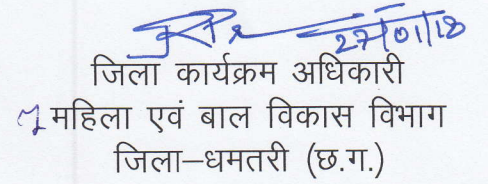 27/01/18
जिला कार्यक्रम अधिकारी
महिला एवं बाल विकास विभाग
जिला–धमतरी (छ.ग.)